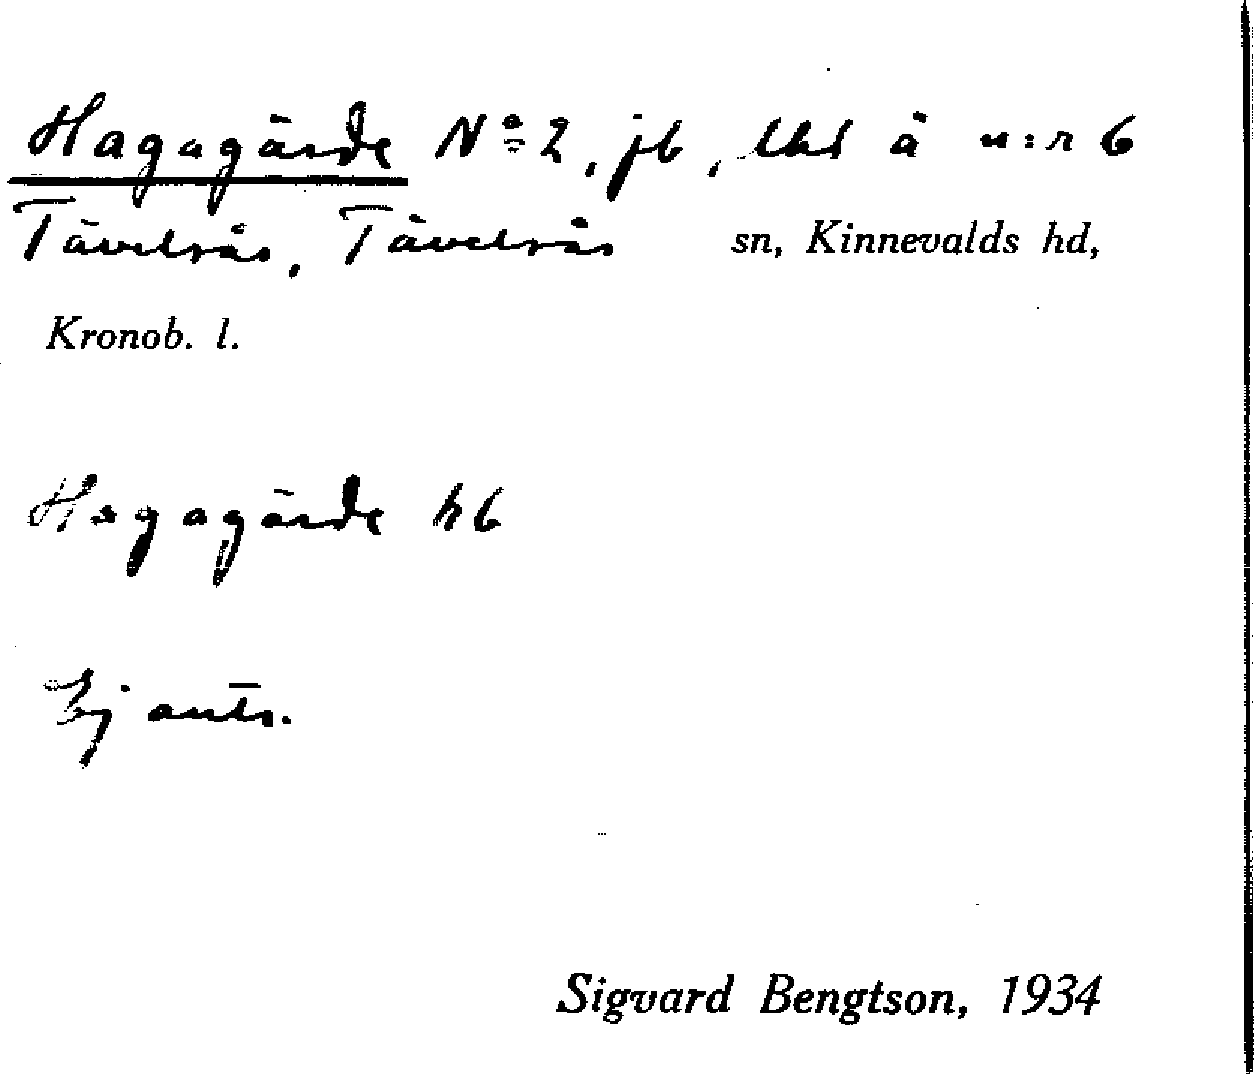 Hagagärde Nº 2, jb, lht å n:r 6
Tävelsås, Tävelsås sn, Kinnevalds hd,
Kronob. l.
Hagagärde hb
Ej antr.
Sigvard Bengtson, 1934